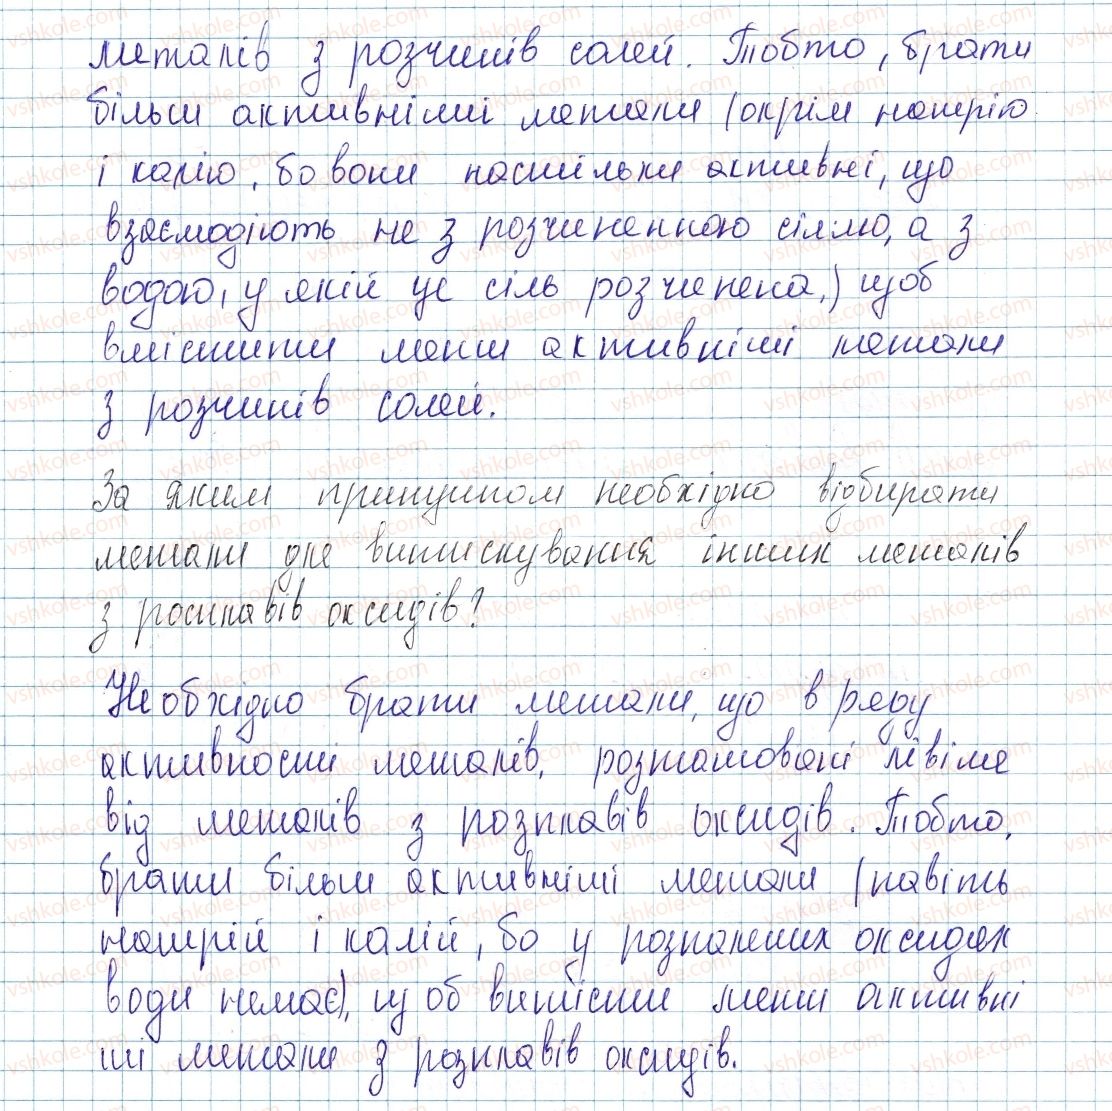 металів з розчинів солей. Тобто, брати
більш активніші метали (окрім натрію
і калію, бо вони настільки активні, що
взаємодіють не з розчиненною сіллю, а з
водою, у якій ця сіль розчинена,) щоб
вмістити менш активніші метали
з розчинів солей.
За яким принципом необхідно відбирати
метали для витискування інших металів
з розплавів оксидів?
Необхідно брати метали, що в ряду
активності металів, розташовані лівіше
від металів з розплавів оксидів. Тобто,
брати більш активніші метали (навіть
натрій і калій, бо у розплавених оксидах
води немає), щоб витісти менш активні
ші метали з розплавів оксидів.
vshkole.com